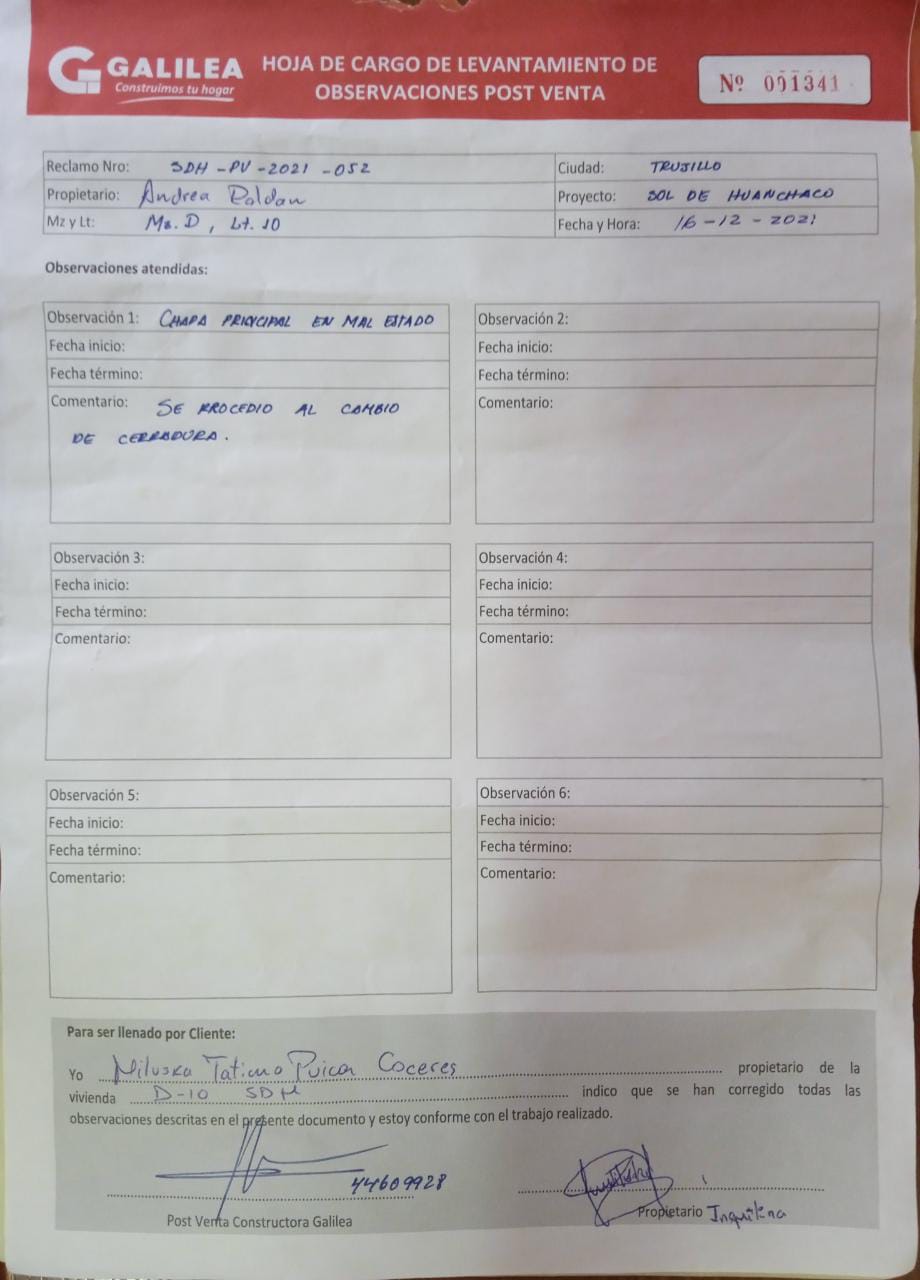 GALILEA
Construimos tu hogar
HOJA DE CARGO DE LEVANTAMIENTO DE
OBSERVACIONES POST VENTA
Nº 001341
Reclamo Nro: SDH-PV-2021-052
Ciudad: TRUJILLO
Propietario: Andrea Roldan
Proyecto: SOL DE HUANCHACO
Mz y Lt: Mz. D, Lt. 10
Fecha y Hora: 16-12-2021
Observaciones atendidas:
Observación 1: CHAPA PRICYCIPAL EN MAL ESTADO
Fecha inicio:
Fecha término:
Comentario: SE PROCEDIO AL CAMBIO
DE CERRADURA.
Observación 2:
Fecha inicio:
Fecha término:
Comentario:
Observación 3:
Fecha inicio:
Fecha término:
Comentario:
Observación 4:
Fecha inicio:
Fecha término:
Comentario:
Observación 5:
Fecha inicio:
Fecha término:
Comentario:
Observación 6:
Fecha inicio:
Fecha término:
Comentario:
Para ser llenado por Cliente:
Yo Miluska Tatiana Puicon Coceres propietario de la
vivienda D-10 SDH indico que se han corregido todas las
observaciones descritas en el presente documento y estoy conforme con el trabajo realizado.
44609928
Post Venta Constructora Galilea
Propietario Inquilina